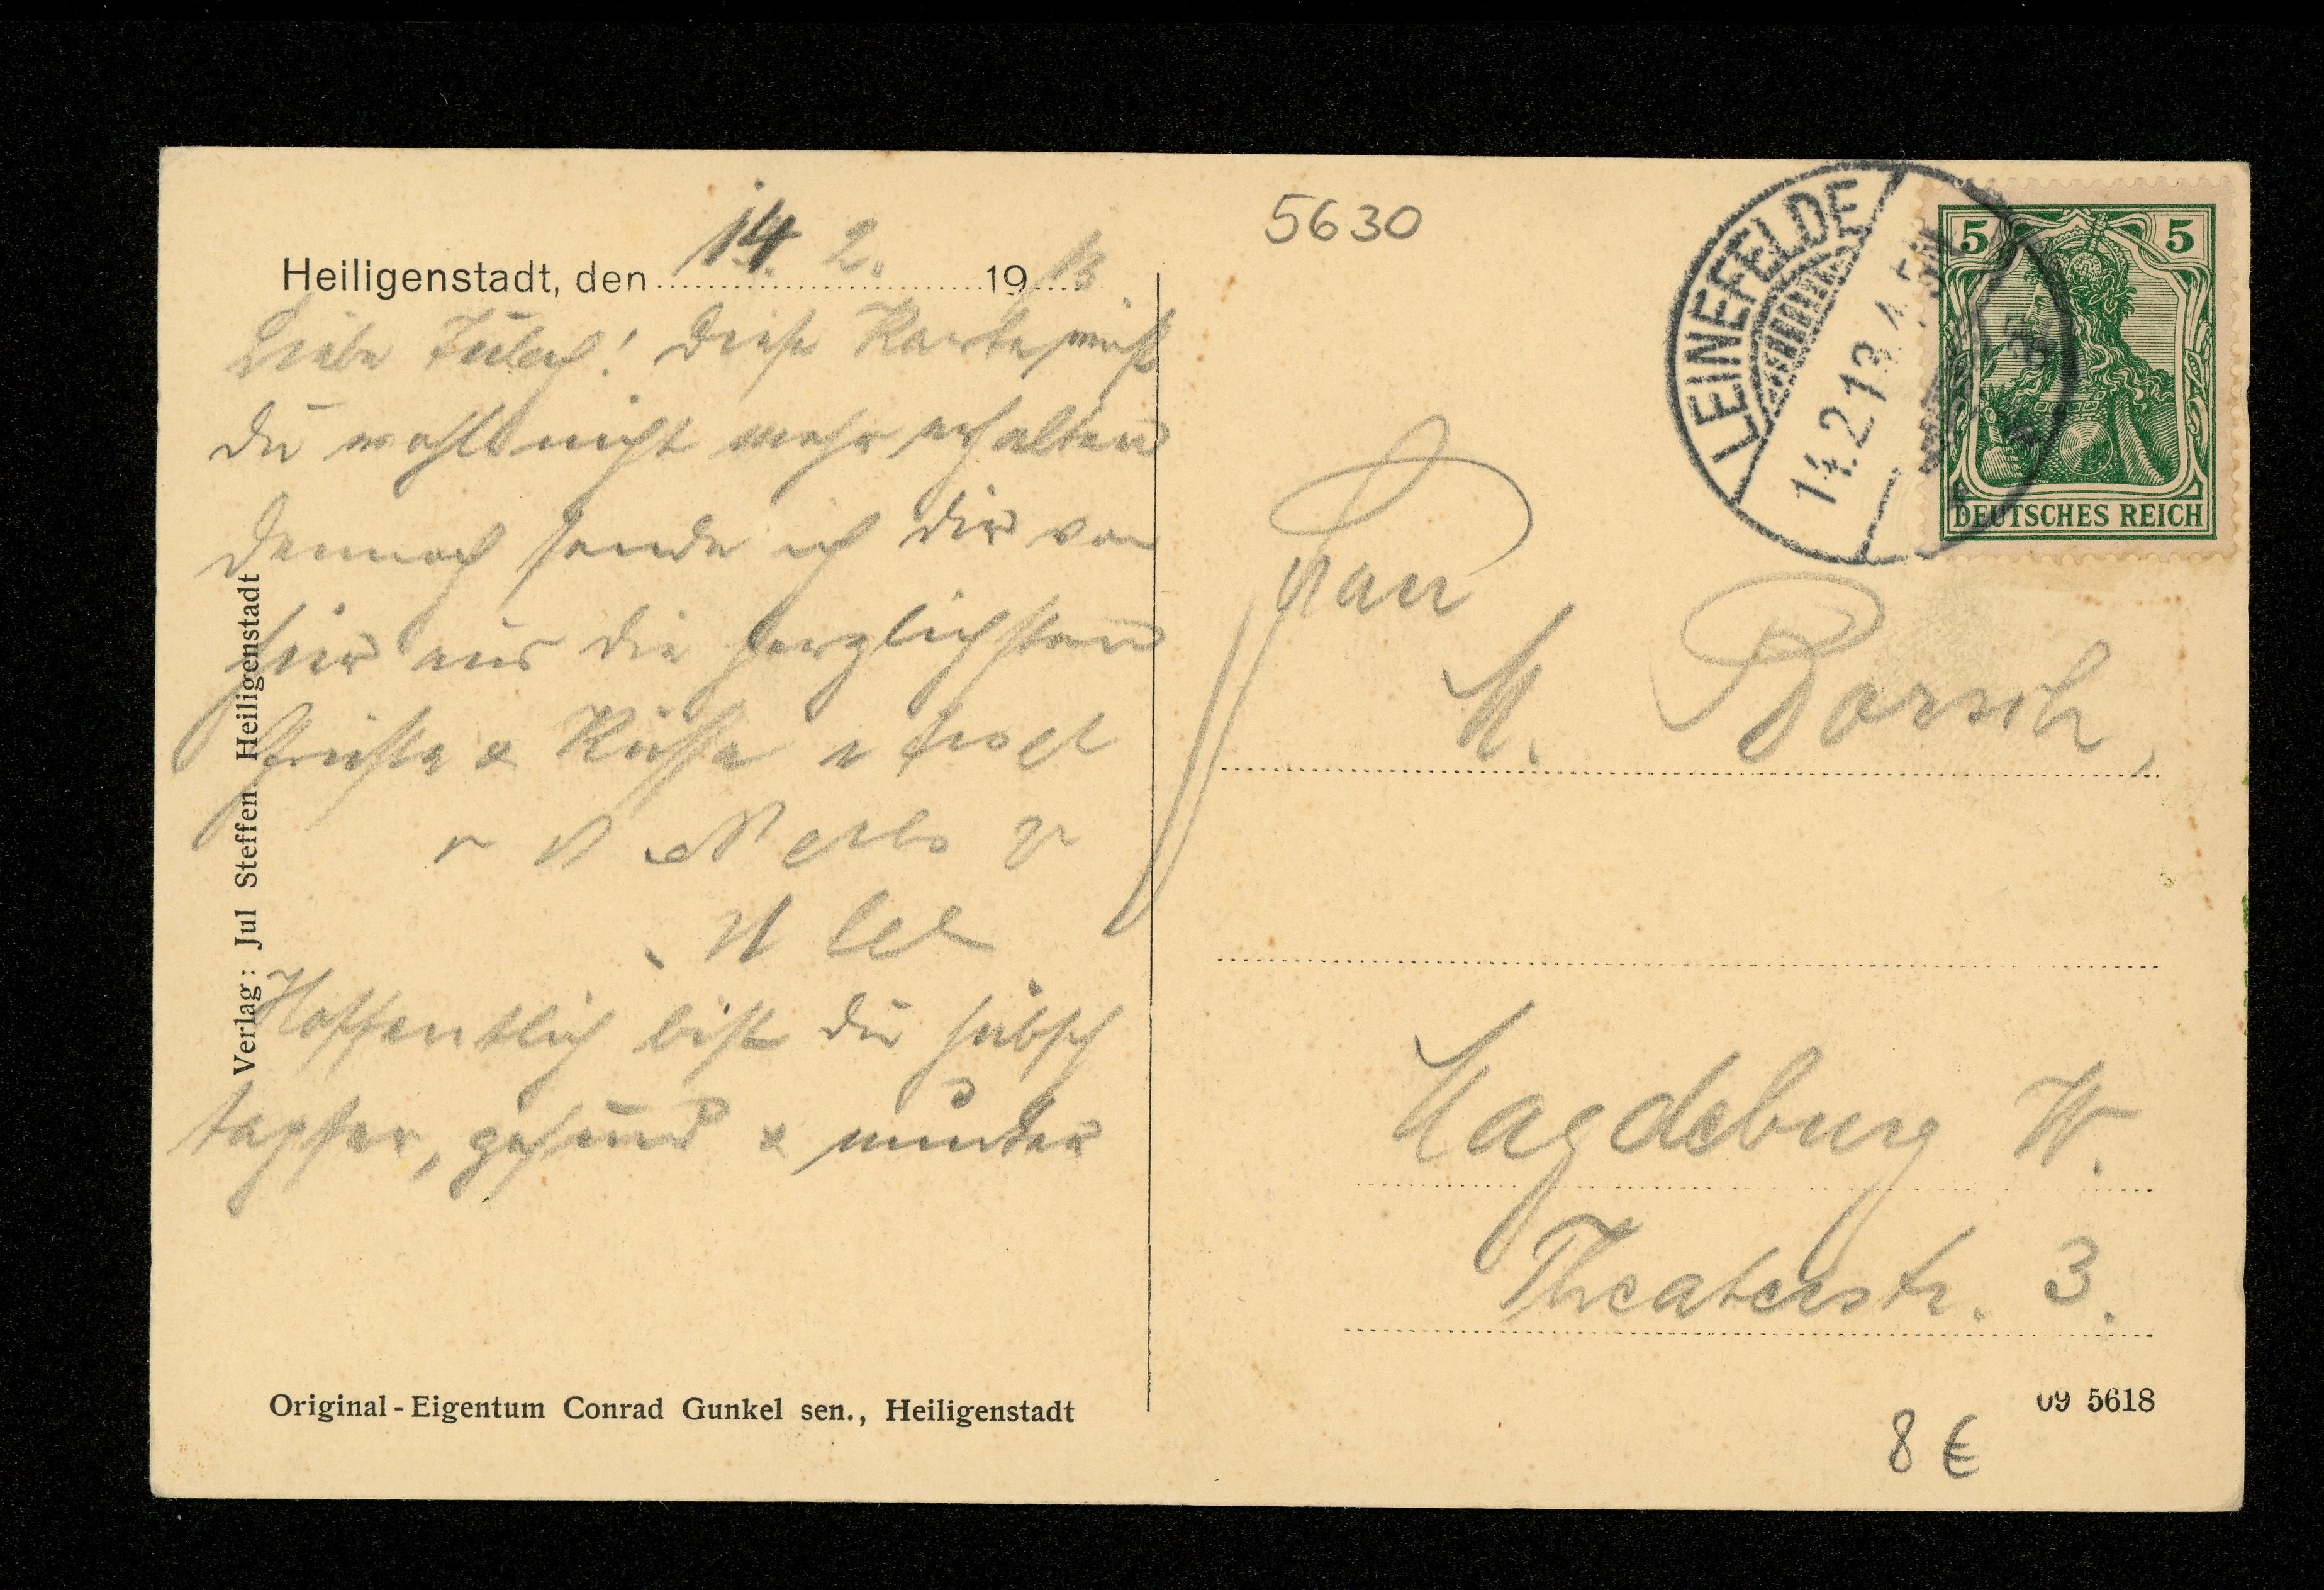 Heiligenstadt, den 14. 2. 1913.
Liebe! Diese Karte wirst
du wohl nicht mehr erhalten
dennoch sende ich dir von
hier aus die herzlichsten
Grüsse & Küsse
Hoffentlich bist du hübsch
tapfer, gesund & munter
Verlag: Jul Steffen Heiligenstadt
Original-Eigentum Conrad Gunkel sen., Heiligenstadt
5630
LEINEFELDE
14.2.13.
5 5
DEUTSCHES REICH
Frau
M. Borsch,
Magdeburg W.
Theaterstr. 3.
09 5618
8 €